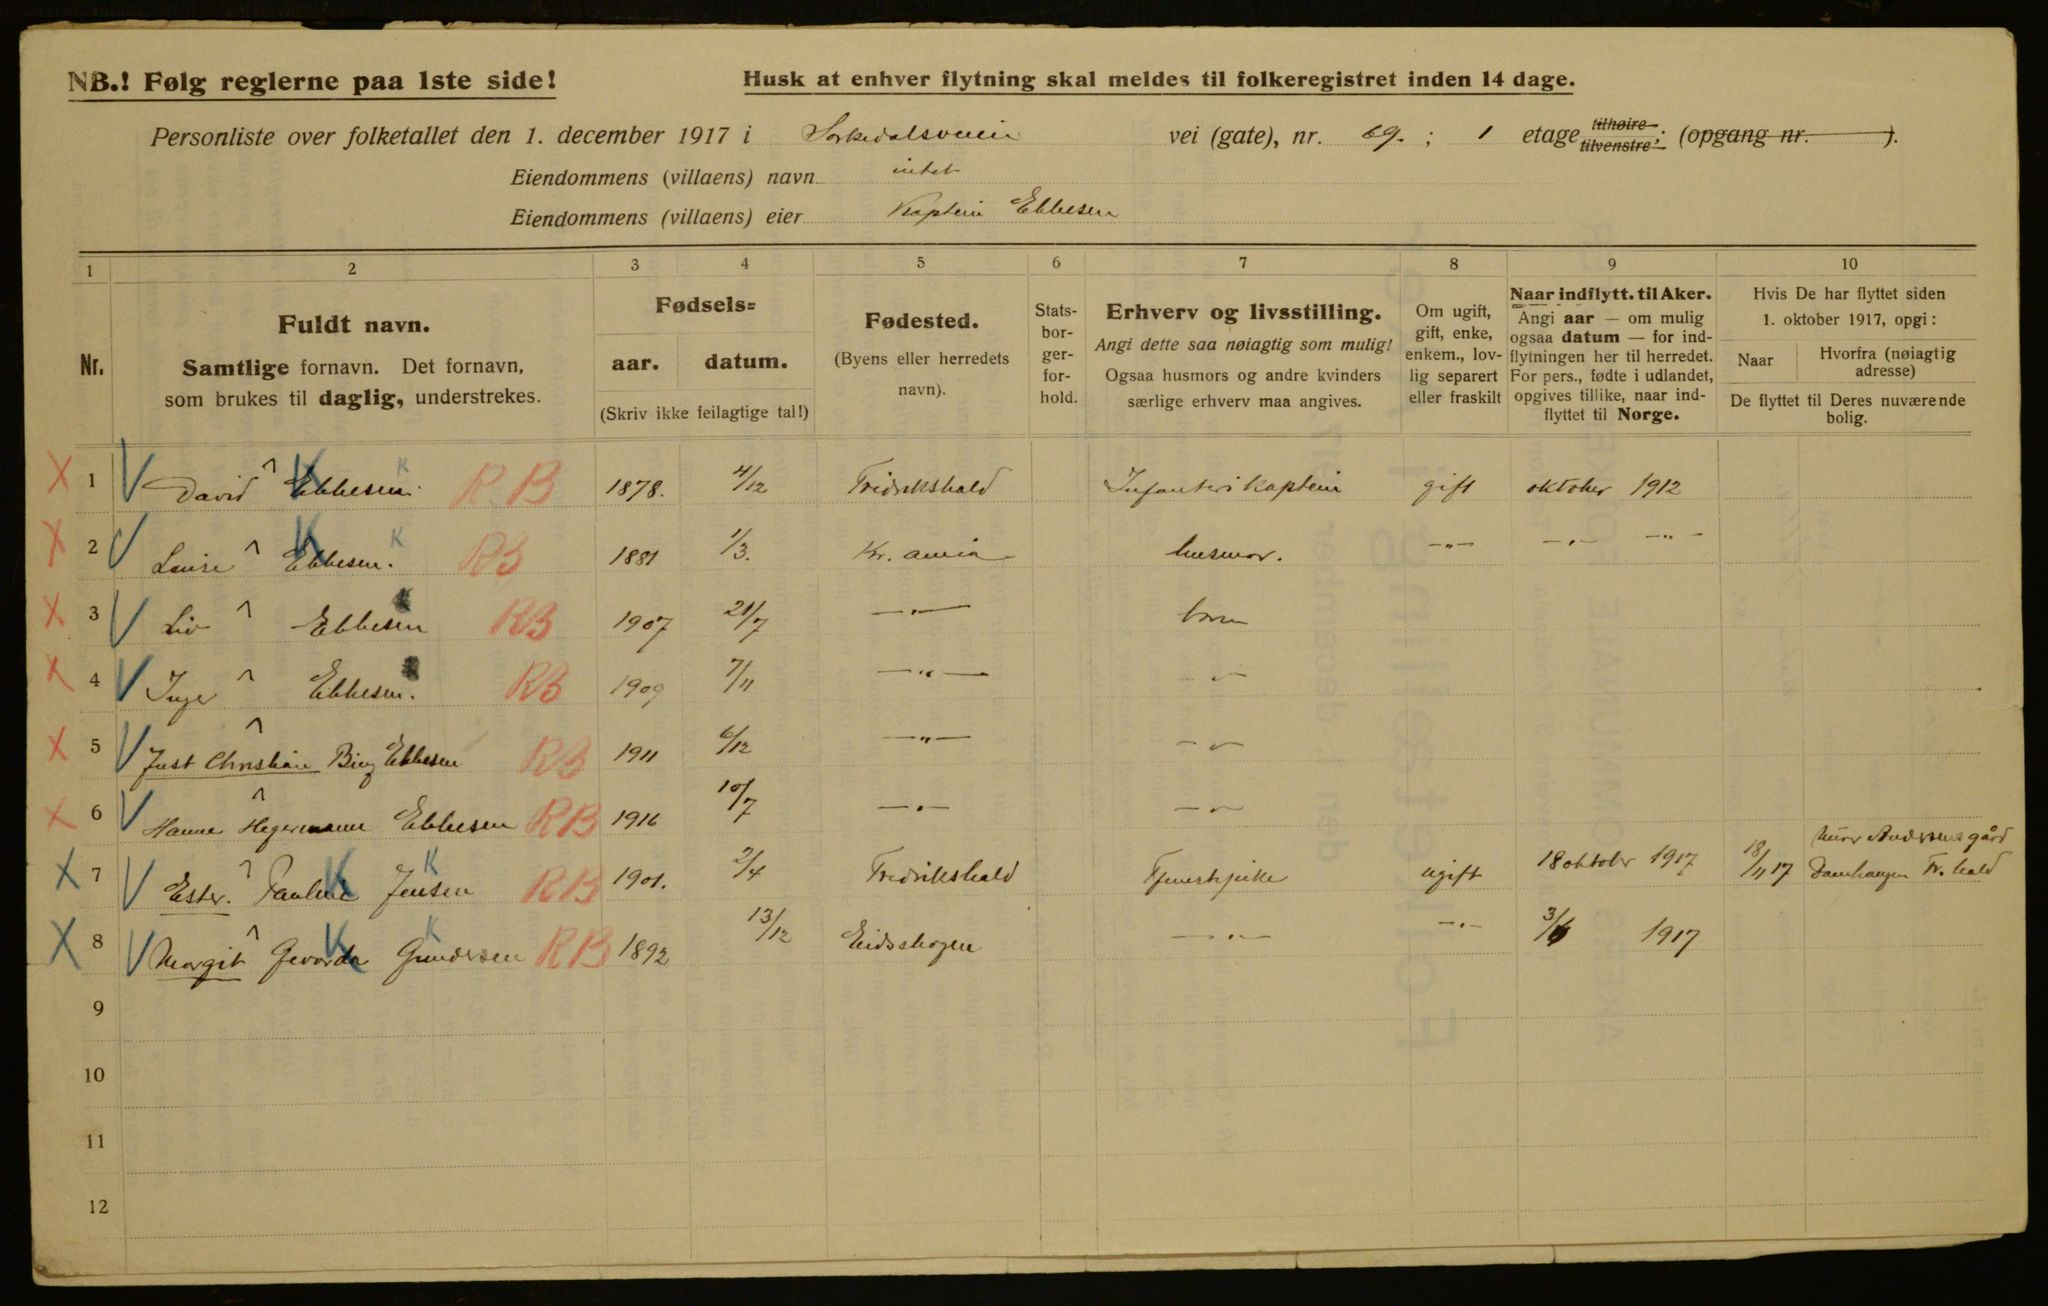 NB.! Følg reglerne paa 1ste side!
Husk at enhver flytning skal meldes til folkeregistret inden 14 dage.
Personliste over folketallet den 1. december 1917 i Sorkedalsveien vei (gate), nr. 69. ; 1 etage tilhøire tilvenstre ; (opgang nr. ).
Eiendommens (villaens) navn intet
Eiendommens (villaens) eier Kaptein Ebbesen
1 2 3 4 5 6 7 8 9 10
Nr.
Fuldt navn.
Samtlige fornavn. Det fornavn,
som brukes til daglig, understrekes.
Fødsels=
aar. datum.
(Skriv ikke feilagtige tal!)
Fødested.
(Byens eller herredets
navn).
Stats-
bor-
ger-
for-
hold.
Erhverv og livsstilling.
Angi dette saa nøiagtig som mulig!
Ogsaa husmors og andre kvinders
særlige erhverv maa angives.
Om ugift,
gift, enke,
enkem., lov-
lig separert
eller fraskilt
Naar indflytt. til Aker.
Angi aar — om mulig
ogsaa datum — for ind-
flytningen her til herredet.
For pers., fødte i udlandet,
opgives tillike, naar ind-
flyttet til Norge.
Hvis De har flyttet siden
1. oktober 1917, opgi:
Naar
Hvorfra (nøiagtig
adresse)
De flyttet til Deres nuværende
bolig.
X 1 V David ^ Ebbesen. K K R.B 1878. 4/12 Fredrikshald Infanterikaptein gift oktober 1912
X 2 V Louise ^ Ebbesen. K K RB 1881 1/3. Kr.ania husmor. —"— —"— —"—
X 3 V Liv ^ Ebbesen K RB 1907 21/7 —"— barn
X 4 V Inger ^ Ebbesen. RB 1909 7/11 —"— —"—
X 5 V Just Christian ^ Bing Ebbesen RB 1911 6/12 —"— —"—
X 6 V Hanne ^ Hegermann Ebbesen RB 1916 10/7 —"— —"—
X 7 V Ester. ^ Pauline K Jensen K RB 1901. 2/4 Fredrikshald Tjenestepike ugift 18 oktober 1917 18/11 17 Murer Andersensgård
Damhaugen Fr.hald
X 8 V Margit ^ K Gundersen K RB 1892 13/12 Eidsskogen —"— —"— 3/6 1917
9
10
11
12